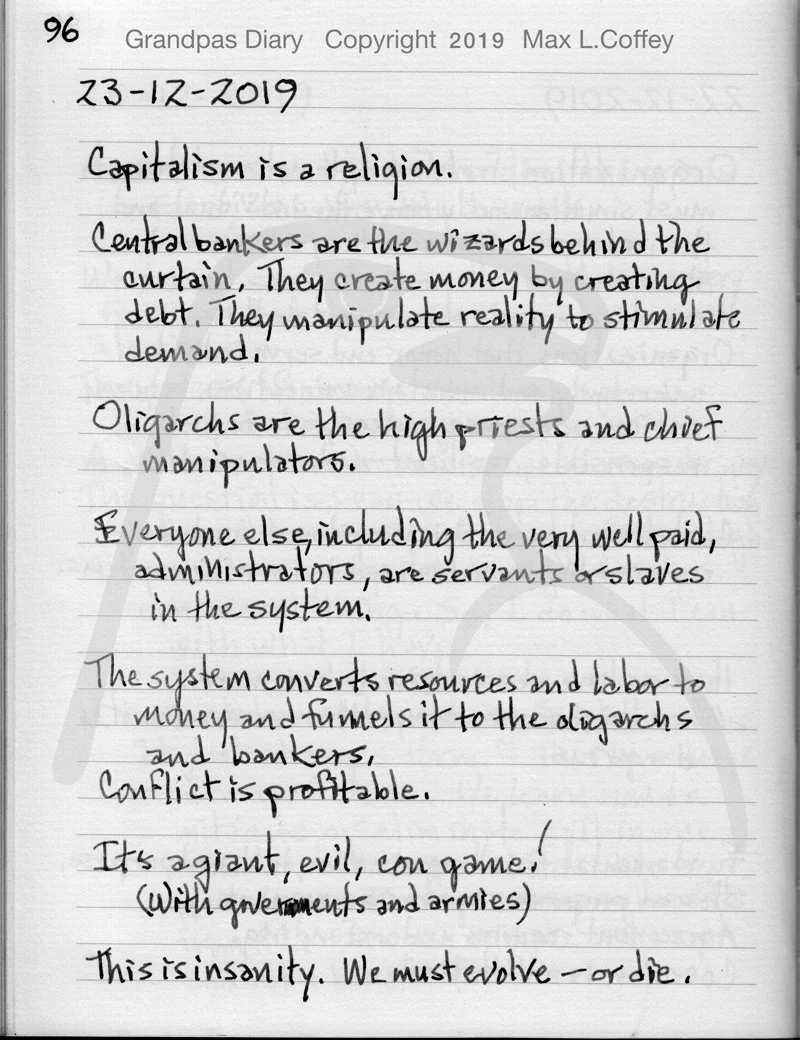 96
Grandpas Diary Copyright 2019 Max L.Coffey
23-12-2019
Capitalism is a religion.
Central bankers are the wizards behind the
curtain. They create money by creating
debt. They manipulate reality to stimulate
demand.
Oligarchs are the high priests and chief
manipulators.
Everyone else, including the very well paid,
administrators, are servants or slaves
in the system.
The system converts resources and labor to
money and funnels it to the oligarchs
and bankers.
Conflict is profitable.
It's a giant, evil, con game!
(With governments and armies)
This is insanity. We must evolve — or die.